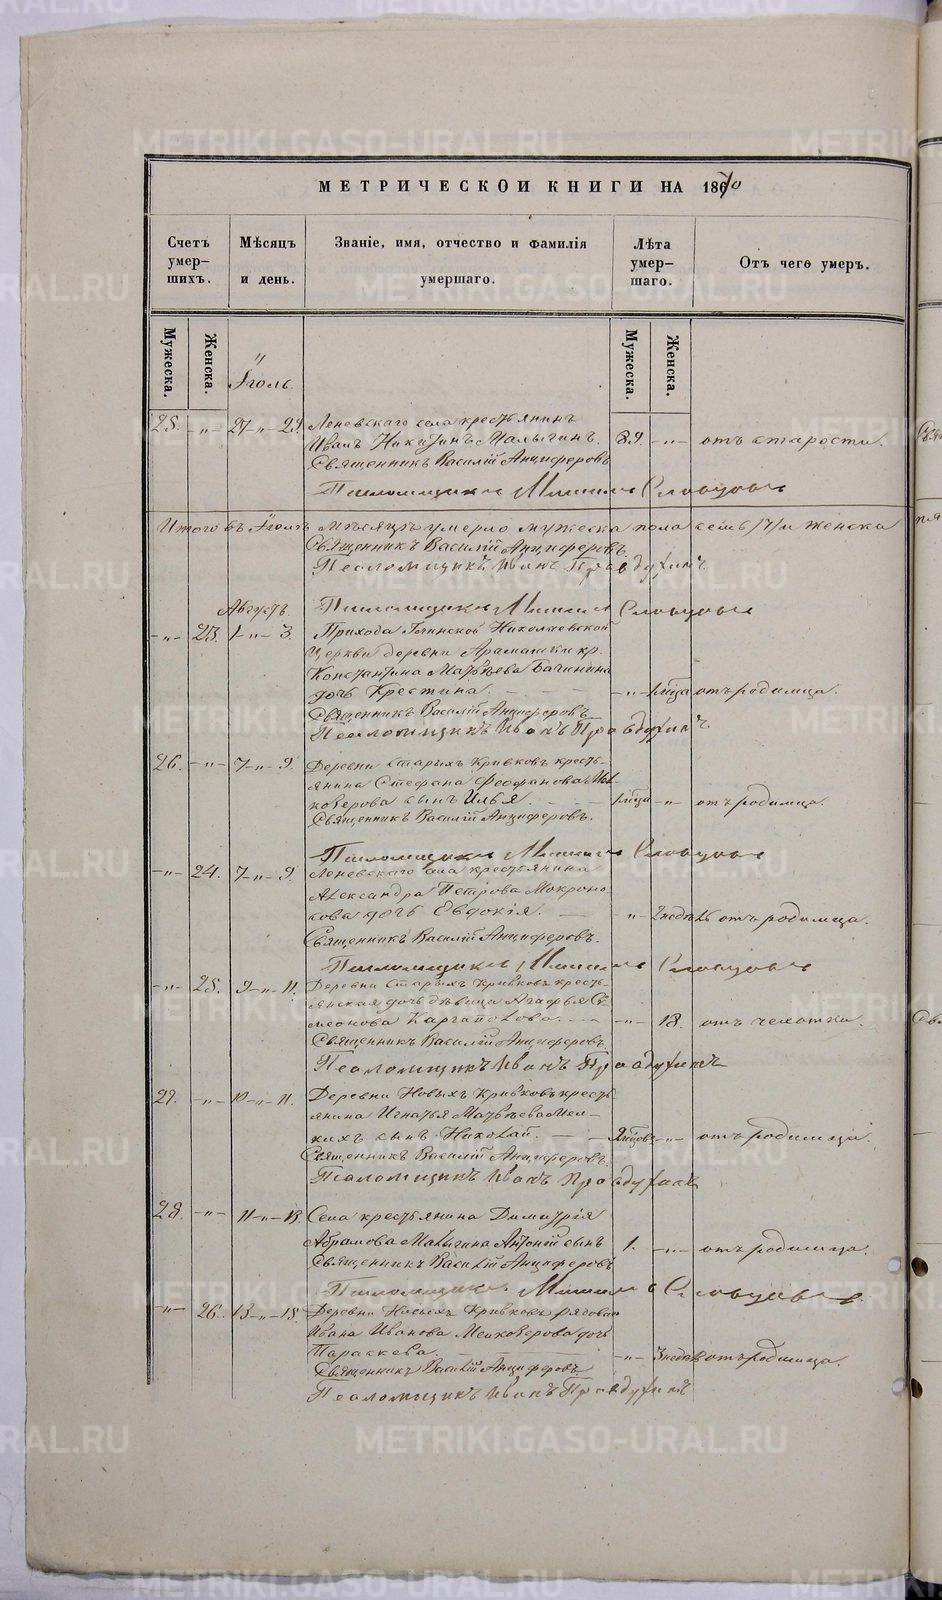 МЕТРИЧЕСКОЙ КНИГИ НА 1870
Счетъ умер- шихъ.
Мѣсяцъ и день.
Званіе, имя, отчество и фамилія умершаго.
Лѣта умер- шаго.
Отъ чего умеръ.
Мужеска.
Женска.
Мужеска.
Женска.
Іюль.
25. -"- 27-"-29. Леневскаго села крестьянинъ
Иванъ Никитинъ Малыгинъ. 89. -"- отъ старости.
Священникъ Василій Анциферовъ
Псаломщикъ Словцовъ
Итого въ Іюлѣ мѣсяцѣ умерло мужеска пола семь /7/ и женска
Священникъ Василій Анциферовъ.
Псаломщикъ Иванъ Правдухинъ
Августъ.
Псаломщикъ Словцовъ
-"- 23. 1-"-3. Прихода Николаевской
церкви деревни Арамашки кр.
Константина Матвѣева Бачинина
дочь Крестина. -"- отъ родимца.
Священникъ Василій Анциферовъ
Псаломщикъ Иванъ Правдухинъ
26. -"- 7-"-9. Деревни Старыхъ Кривковъ кресть-
янина Стефана Феофанова
коверова сынъ Илья. -"- отъ родимца.
Священникъ Василій Анциферовъ.
Псаломщикъ Словцовъ
-"- 24. 7-"-9. Леневскаго села крестьянина
Александра Петрова Мокроно-
сова дочь Евдокія. -"- 2 недѣль отъ родимца.
Священникъ Василій Анциферовъ.
Псаломщикъ Словцовъ
-"- 25. 9-"-11. Деревни Старыхъ Кривковъ кресть-
янская дочь дѣвица Агафья Си-
меонова Каргаполова. -"- 18. отъ чахотки.
Священникъ Василій Анциферовъ
Псаломщикъ Иванъ Правдухинъ
27. -"- 10-"-11. Деревни Новыхъ Кривковъ кресть-
янина Игнатья Матвѣева
кихъ сынъ Николай. -"- отъ родимца.
Священникъ Василій Анциферовъ.
Псаломщикъ Иванъ Правдухинъ
28. -"- 11-"-13. Села крестьянина Димитрія
Абрамова Малыгина Антоній сынъ 1. -"- отъ родимца.
Священникъ Василій Анциферовъ
Псаломщикъ Словцовъ
-"- 26. 13-"-15. Деревни Новыхъ Кривковъ рядоваго
Ивана Иванова Мелковерова дочь
Параскева. -"- 3 недѣль отъ родимца.
Священникъ Василій Анциферовъ
Псаломщикъ Иванъ Правдухинъ
METRIKI.GASO-URAL.RU